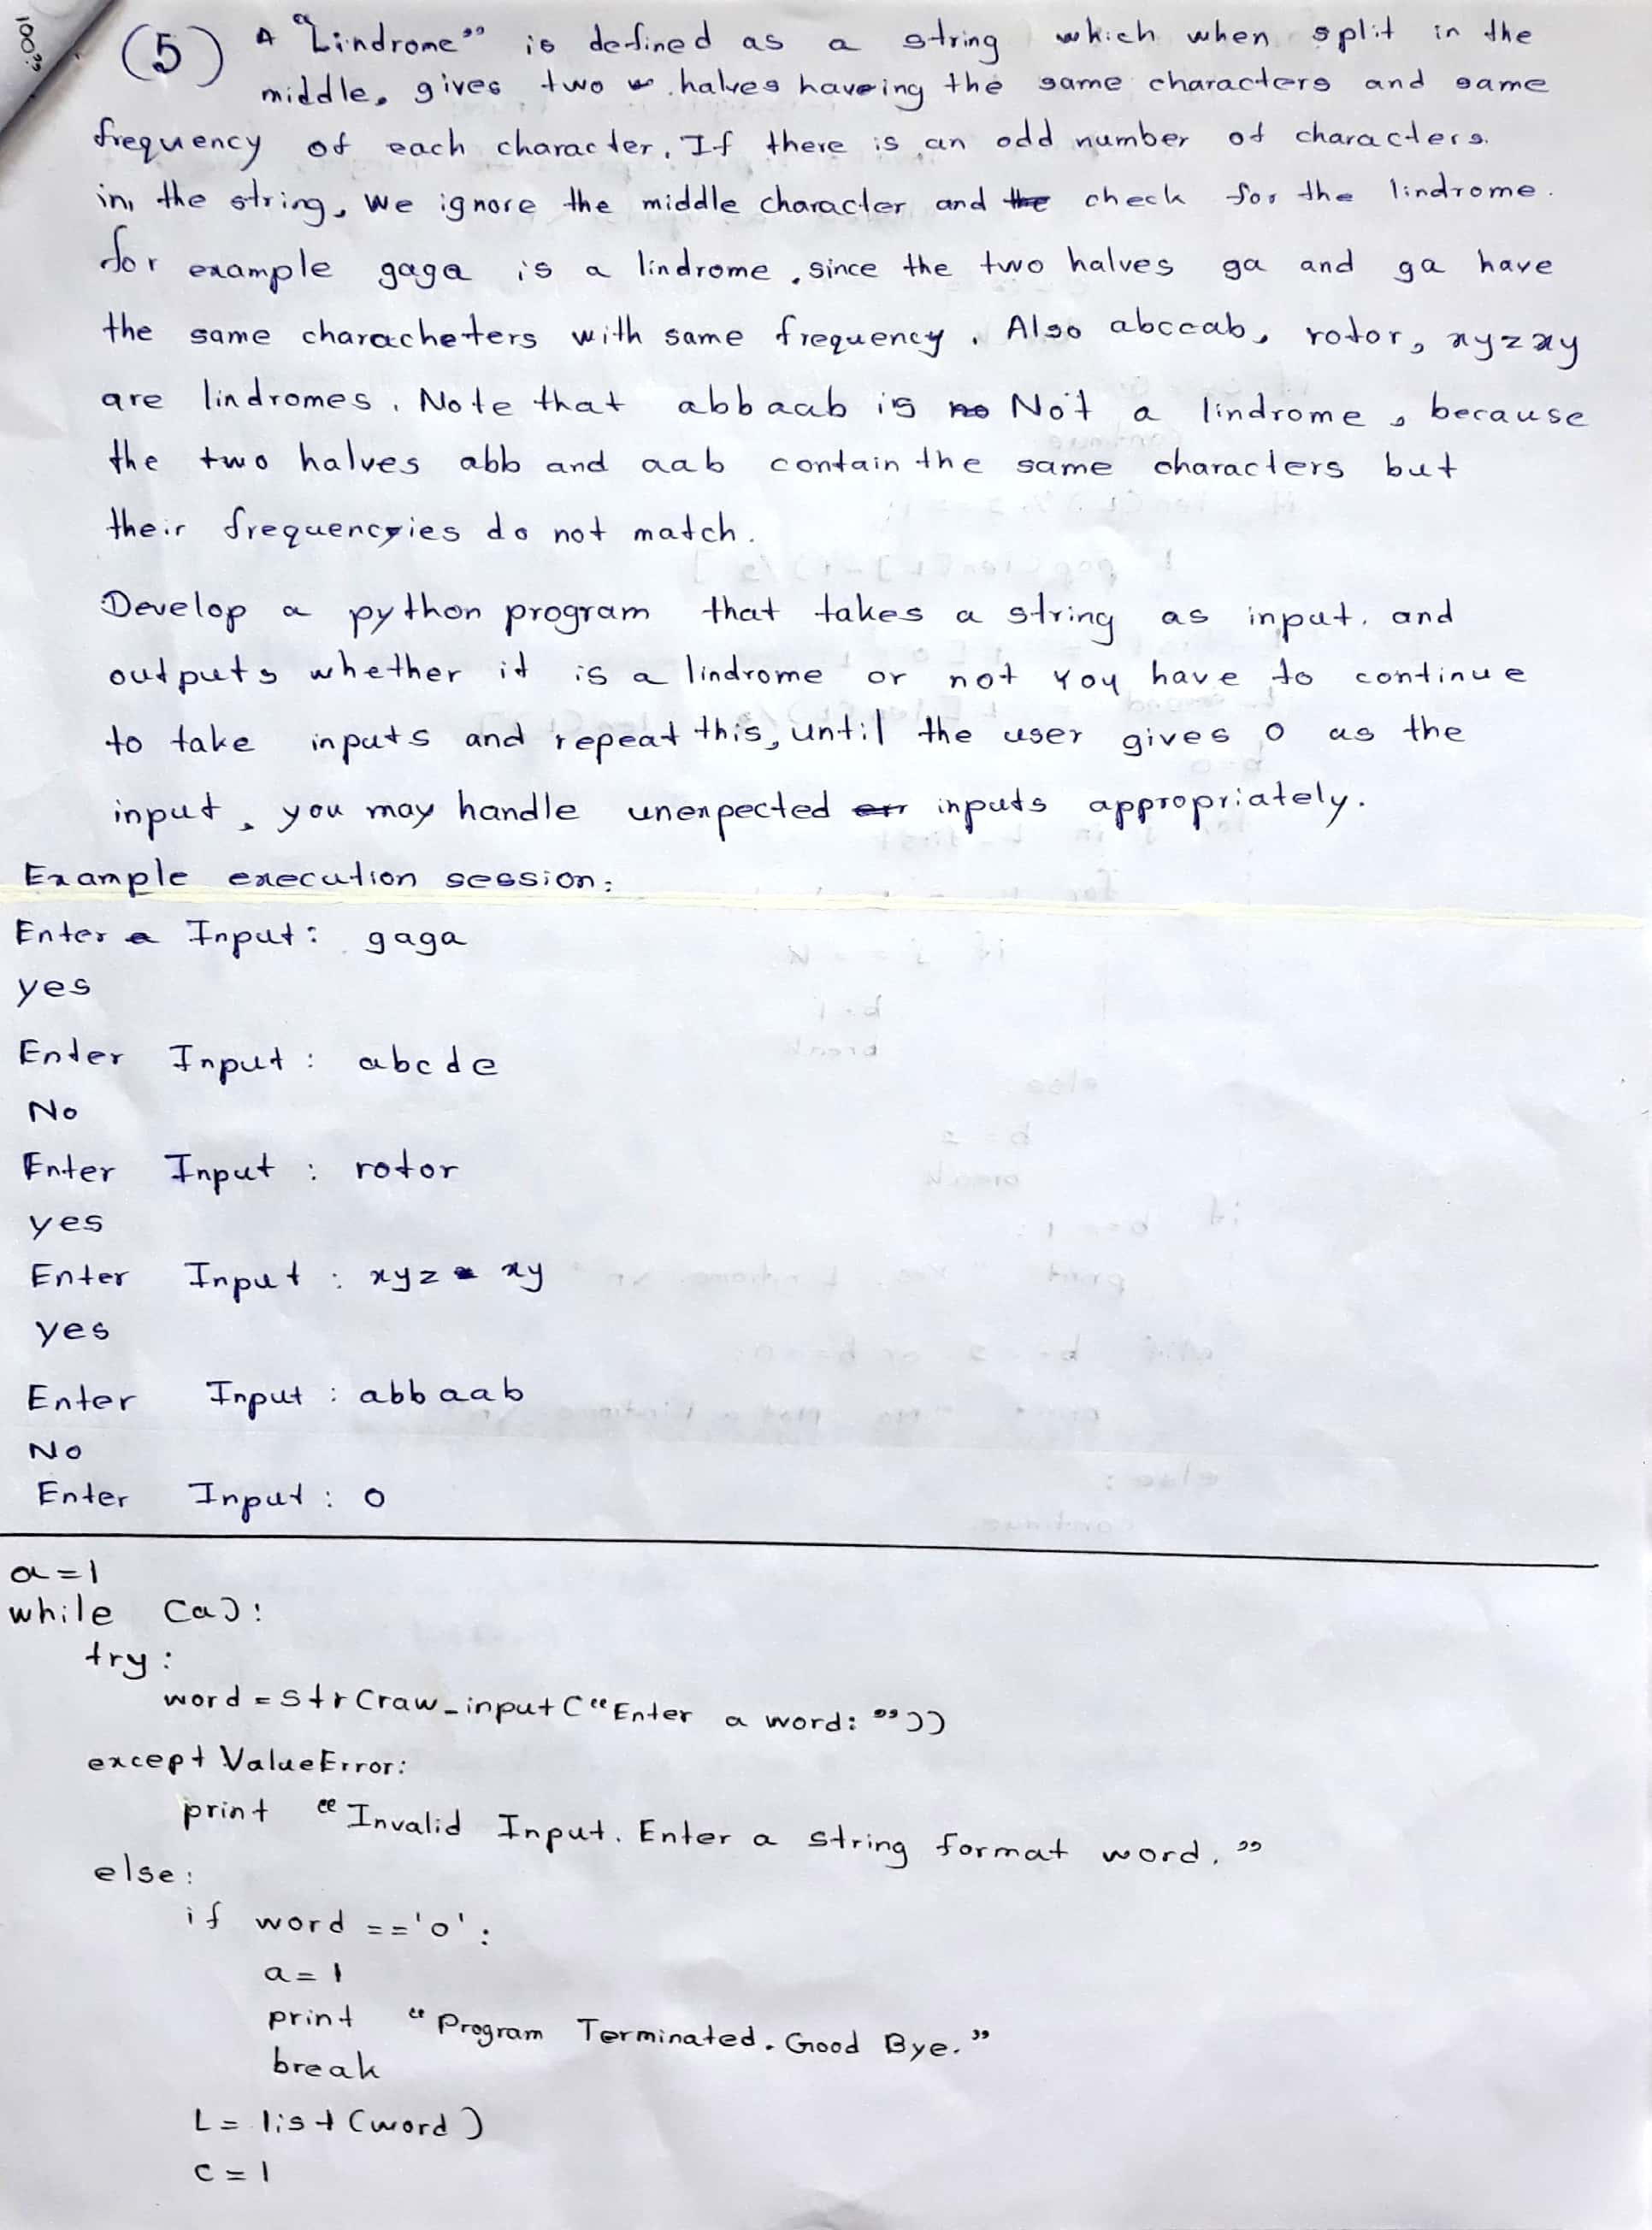 (5) A "Lindrome" is defined as a string which when split in the
middle, gives two halves haveing the same characters and same
frequency of each character. If there is an odd number of characters.
in the string, we ignore the middle character and the check for the lindrome.
for example gaga is a lindrome, since the two halves ga and ga have
the same characheters with same frequency. Also abccab, rotor, xyzxy
are lindromes. Note that abbaab is no Not a lindrome, because
the two halves abb and aab contain the same characters but
their frequencyies do not match.
Develop a python program that takes a string as input. and
outputs whether it is a lindrome or not You have to continue
to take inputs and repeat this, until the user gives 0 as the
input, you may handle unexpected err inputs appropriately.
Example execution session:
Enter a Input: gaga
yes
Enter Input: abcde
No
Enter Input: rotor
yes
Enter Input: xyz xy
yes
Enter Input: abbaab
No
Enter Input: 0
a=1
while (a):
try:
word = str(raw_input("Enter a word: "))
except ValueError:
print "Invalid Input. Enter a string format word."
else:
if word =='0':
a=1
print "Program Terminated. Good Bye."
break
L= list(word)
c=1